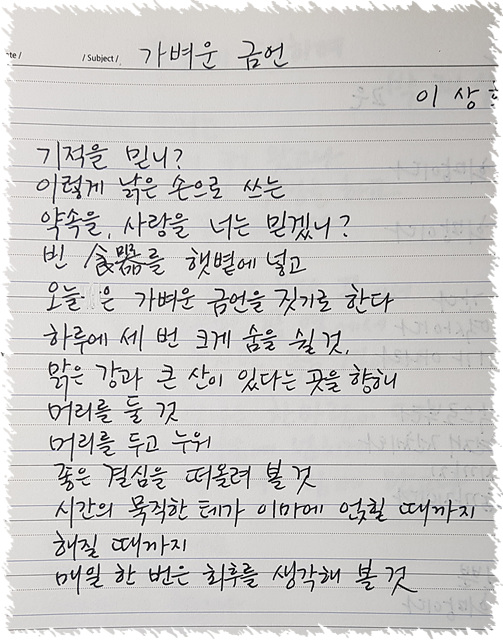 / Subject /
가벼운 금언
이 상
기적을 믿니?
이렇게 낡은 손으로 쓰는
약속을, 사랑을 너는 믿겠니?
빈 食器를 햇볕에 널고
오늘은 가벼운 금언을 짓기로 한다
하루에 세 번 크게 숨을 쉴 것,
맑은 강과 큰 산이 있다는 곳을 향해
머리를 둘 것
머리를 두고 누워
좋은 결심을 떠올려 볼 것
시간의 묵직한 테가 이마에 얹힐 때까지
해질 때까지
매일 한 번은 최후를 생각해 볼 것